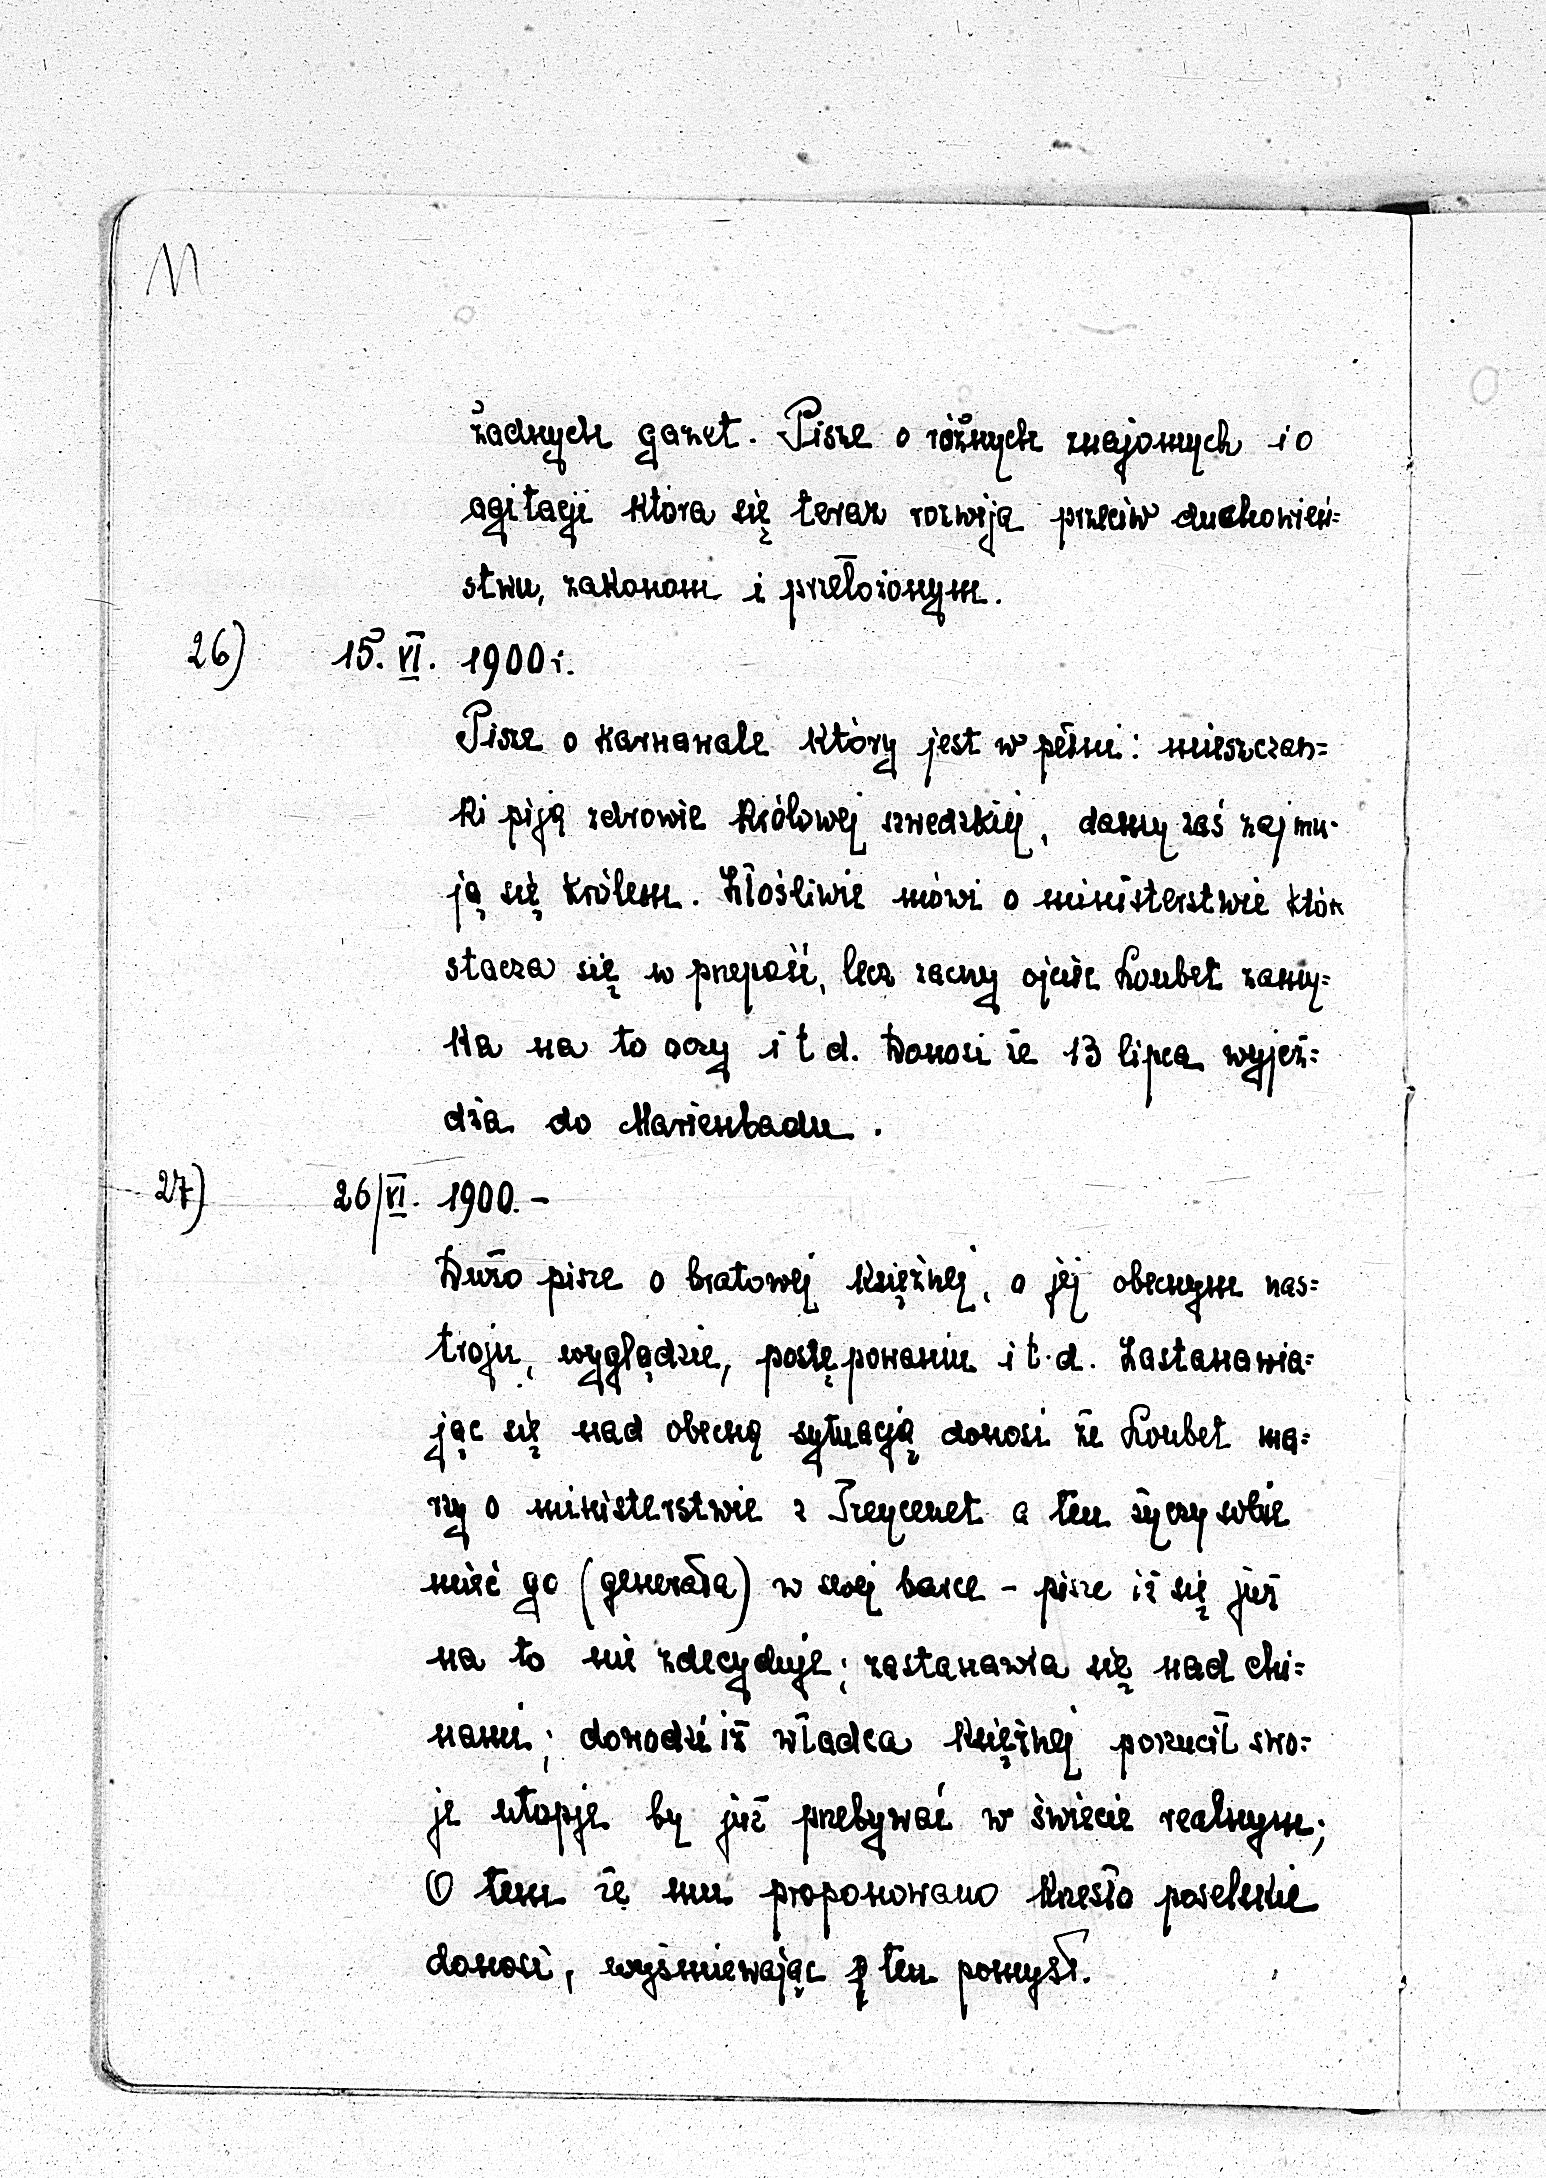 11
żadnych gazet. Pisze o różnych znajomych i o
agitacji która się teraz rozwija przeciw duchowień=
stwu, zakonom i przełożonym.
26) 15. VI. 1900 r.
Pisze o karnawale który jest w pełni: mieszczan=
ki piją zdrowie Królowej szwedzkiej, damy zaś zajmu-
ją się królem. Złośliwie mówi o ministerstwie któr
stacza się w przepaść, lecz zacny ojciec Loubet zamy=
ka na to oczy i t d. Donosi że 13 lipca wyjeż=
dża do Marienbadu.
27) 26/VI. 1900. -
Dużo pisze o bratowej Księżnej, o jej obecnym nas=
troju, wyglądzie, postępowaniu i t.d. Zastanawia=
jąc się nad obecną sytuacją donosi że Loubet ma=
rzy o ministerstwie z Freycenet a ten życzy sobie
mieć go (generała) w swej barce - pisze iż się już
na to nie zdecyduje; zastanawia się nad chi=
nami; dowodzi iż władca Księżnej porzucił swo=
je utopje by już przebywać w świecie realnym;
O tem że mu proponowano krzesło poselskie
donosi, wyśmiewając ten pomysł.